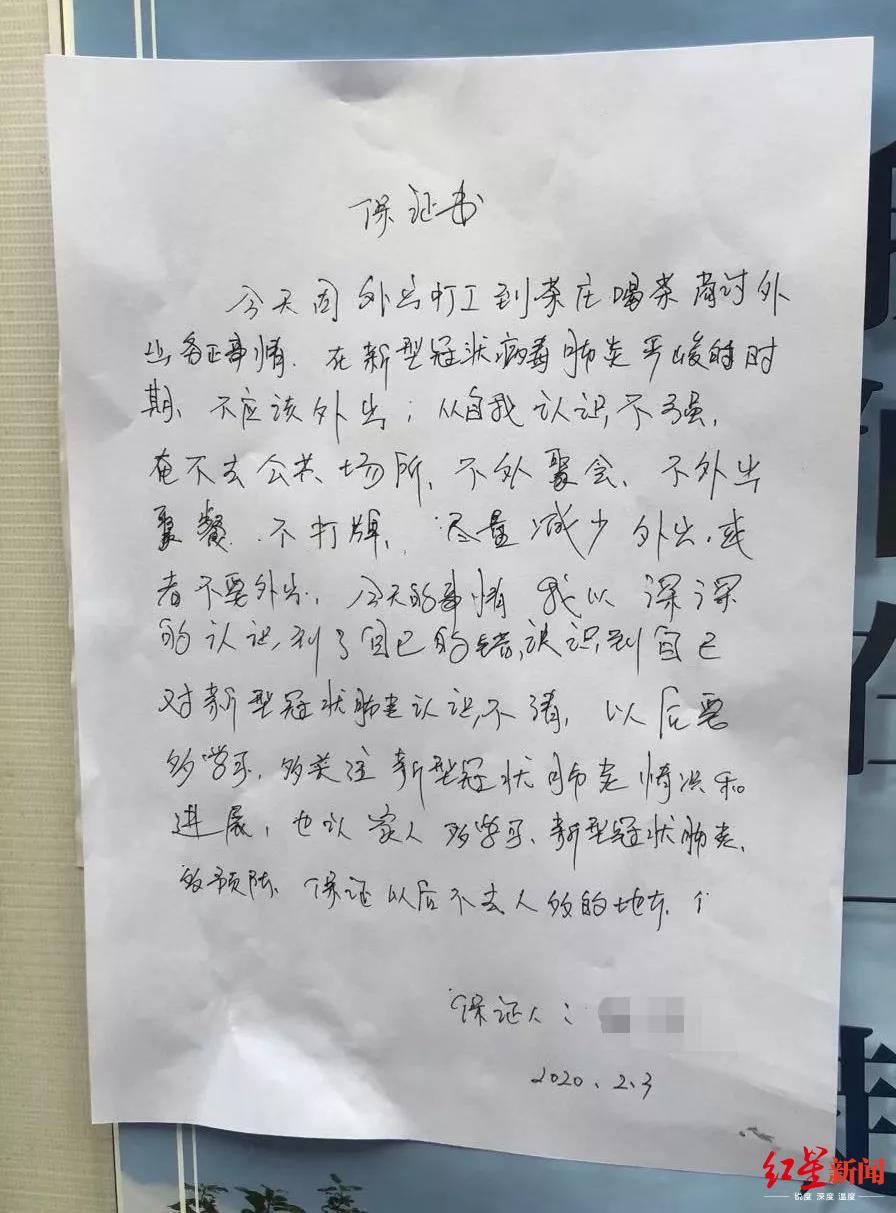 保证书
今天因外出打工到茶庄喝茶商讨外
出务工事情.在新型冠状病毒肺炎严峻的时
期、不应该外出;从自我认识不强,
不去公共场所、不外聚会、不外出
聚餐.不打牌、尽量减少外出.或
者不要外出、今天的事情我以深深
的认识到了自己的错误,识到自己
对新型冠状肺炎认识不清,以后要
多学习,多关注新型冠状肺炎情况和
进展,也认家人多学习、新型冠状肺炎、
的预防、保证以后不去人多的地方、
保证人:
2020.2.3
红星新闻
锐度 深度 温度